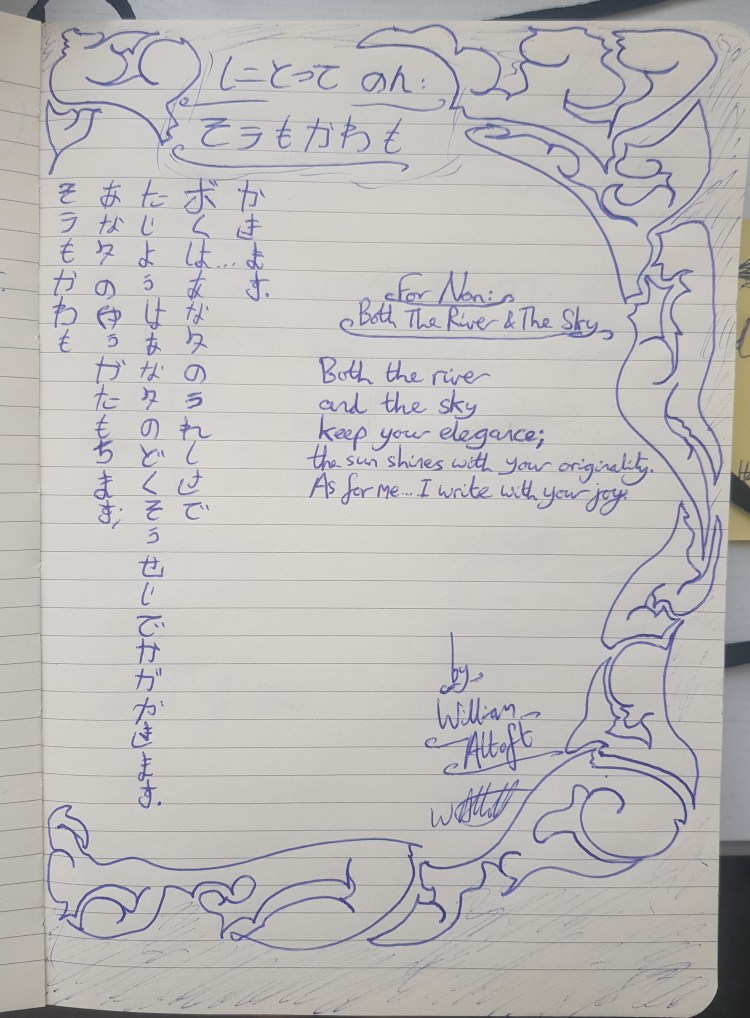 にとって のん:
そラもかわも
そラもかわも
あなタのゆうがたもちます;
たじようはあなタのどくそうせいでかがかきます.
ボくは...あなタのうれしさで
かきます.
For Non:
Both The River & The Sky
Both the river
and the sky
keep your elegance;
the sun shines with your originality.
As for me... I write with your joy.
by
William
Altoft